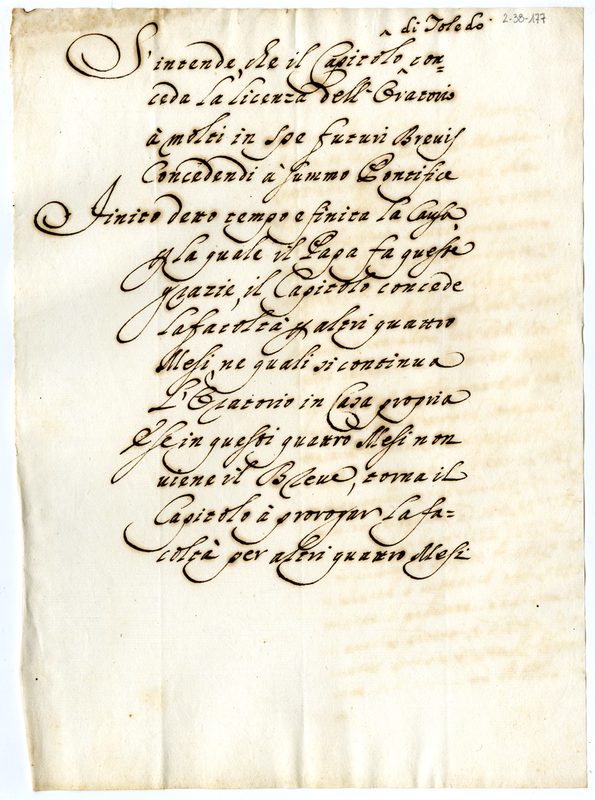 2-38-177
^ di Toledo
S'intende che il Capitolo con=
ceda la licenza dell'Oratorio
à molti in spe futuri Brevis
Concedendi à summo Pontifice
Finito detto tempo e finita la Causa
p la quale il Papa fa queste
grazie, il Capitolo concede
la facoltà p altri quattro
Mesi, ne quali si continua
L'Oratorio in Casa propria
E se in questi quattro Mesi non
viene il Breve, torna il
Capitolo à prorogar la fa=
coltà per altri quattro Mesi